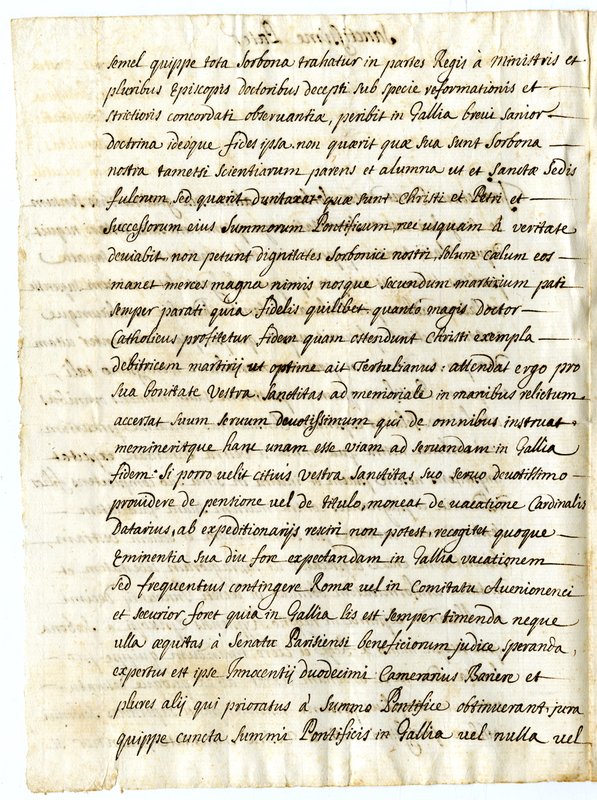 semel quippe tota Sorbona trahatur in partes Regis à Ministris et
pluribus Episcopis doctoribus decepti sub specie reformationis et
strictioris concordati observantiæ, peribit in Gallia brevi sanior
doctrina ideoque fides ipsa. non quærit quæ sua sunt Sorbona
nostra tametsi scientiarum parens et alumna ut et Sanctæ Sedis
fulcrum sed quærit duntaxat quæ sunt Christi et Petri et
Successorum eius Summorum Pontificum, nec usquam à veritate
deviabit, non petunt dignitates Sorbonici nostri, solum cælum eos
manet merces magna nimis nosque secundum martirium pati
semper parati quia fidelis quilibet quantò magis doctor
Catholicus profitetur fidem quam ostendunt Christi exempla
debitricem martirij ut optime ait Tertulianus: attendat ergo pro
sua bonitate Vestra Sanctitas ad memoriale in manibus relictum
accersat suum servum devotissimum qui de omnibus instruat
memineritque hanc unam esse viam ad servandam in Gallia
fidem. Si porro velit citiùs Vestra Sanctitas suo servo devotissimo
providere de pensione vel de titulo, moneat de vacatione Cardinalis
Datarius, ab expeditionarijs resciri non potest, recogitet quoque
Eminentia sua diu fore expectandam in Gallia vacationem
sed frequentius contingere Romæ vel in Comitatu Avenionenci
et securior foret quia in Gallia lis est semper timenda neque
ulla æquitas à Senatu Parisiensi beneficiorum judice speranda,
expertus est ipse Innocentij duodecimi Camerarius Bariere et
plures alij qui prioratus à Summo Pontifice obtinuerant, jura
quippe cuncta Summi Pontificis in Gallia vel nulla vel